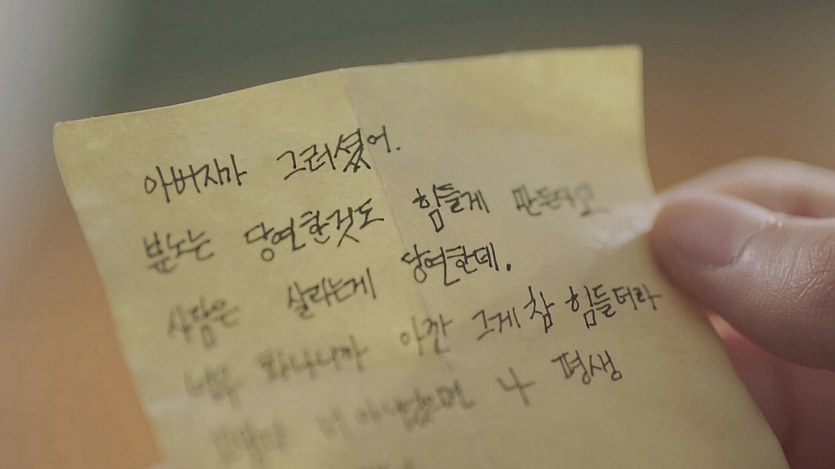 아버지가 그러셨어.
분노는 당연한것도 힘들게 만든다고
사람은 살라는게 당연한데.
너무 화나니까 아깐 그게 참 힘들더라
너 아니었으면 나 평생